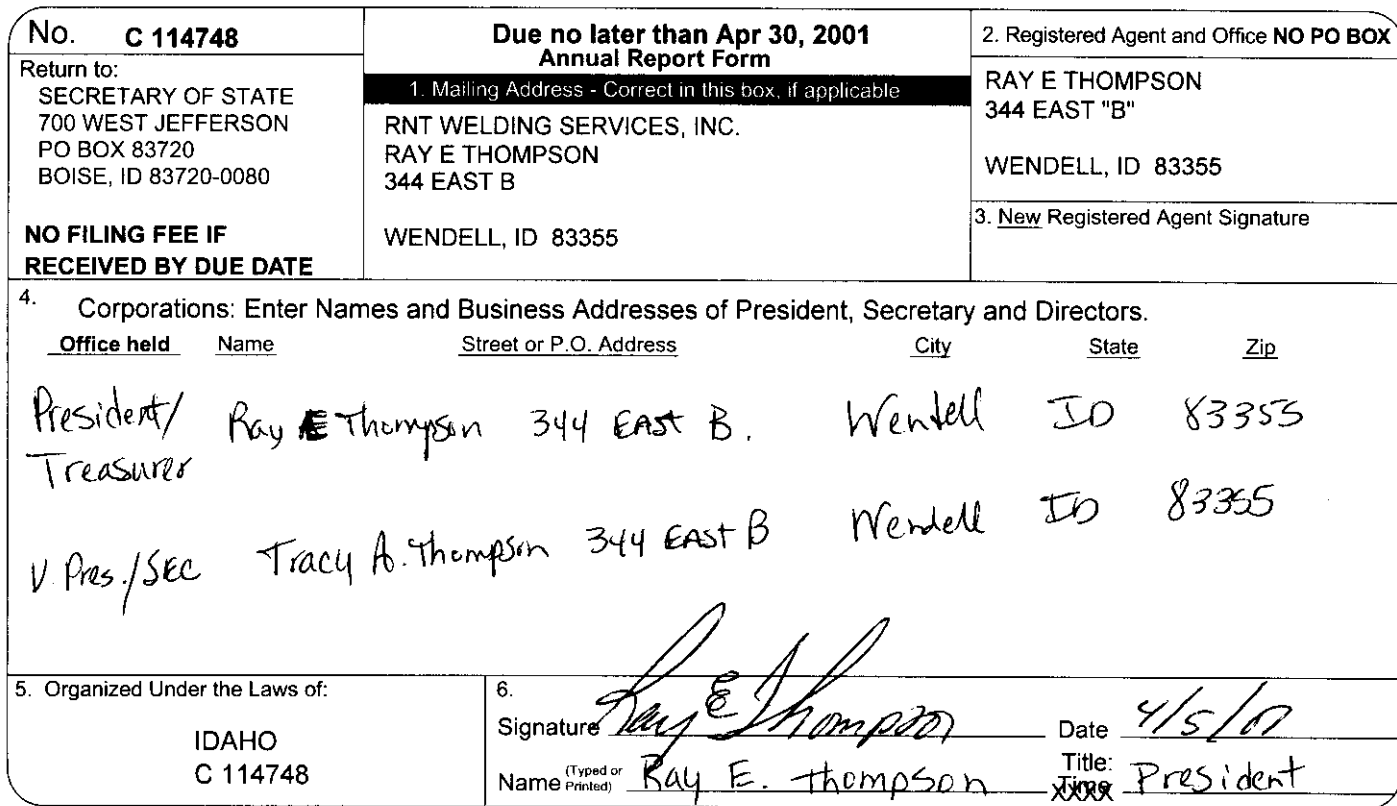 No. C 114748
Return to:
SECRETARY OF STATE
700 WEST JEFFERSON
PO BOX 83720
BOISE, ID 83720-0080
NO FILING FEE IF
RECEIVED BY DUE DATE
Due no later than Apr 30, 2001
Annual Report Form
1. Mailing Address - Correct in this box, if applicable
RNT WELDING SERVICES, INC.
RAY E THOMPSON
344 EAST B
WENDELL, ID 83355
2. Registered Agent and Office NO PO BOX
RAY E THOMPSON
344 EAST "B"
WENDELL, ID 83355
3. New Registered Agent Signature
4. Corporations: Enter Names and Business Addresses of President, Secretary and Directors.
Office held Name Street or P.O. Address City State Zip
President/ Ray E Thompson 344 EAST B. Wendell ID 83355
Treasurer
V. Pres./SEC Tracy A. Thompson 344 EAST B Wendell ID 83355
5. Organized Under the Laws of:
IDAHO
C 114748
6.
Signature Ray E Thompson Date 4/5/01
Name (Typed or Printed) Ray E. Thompson Title: President